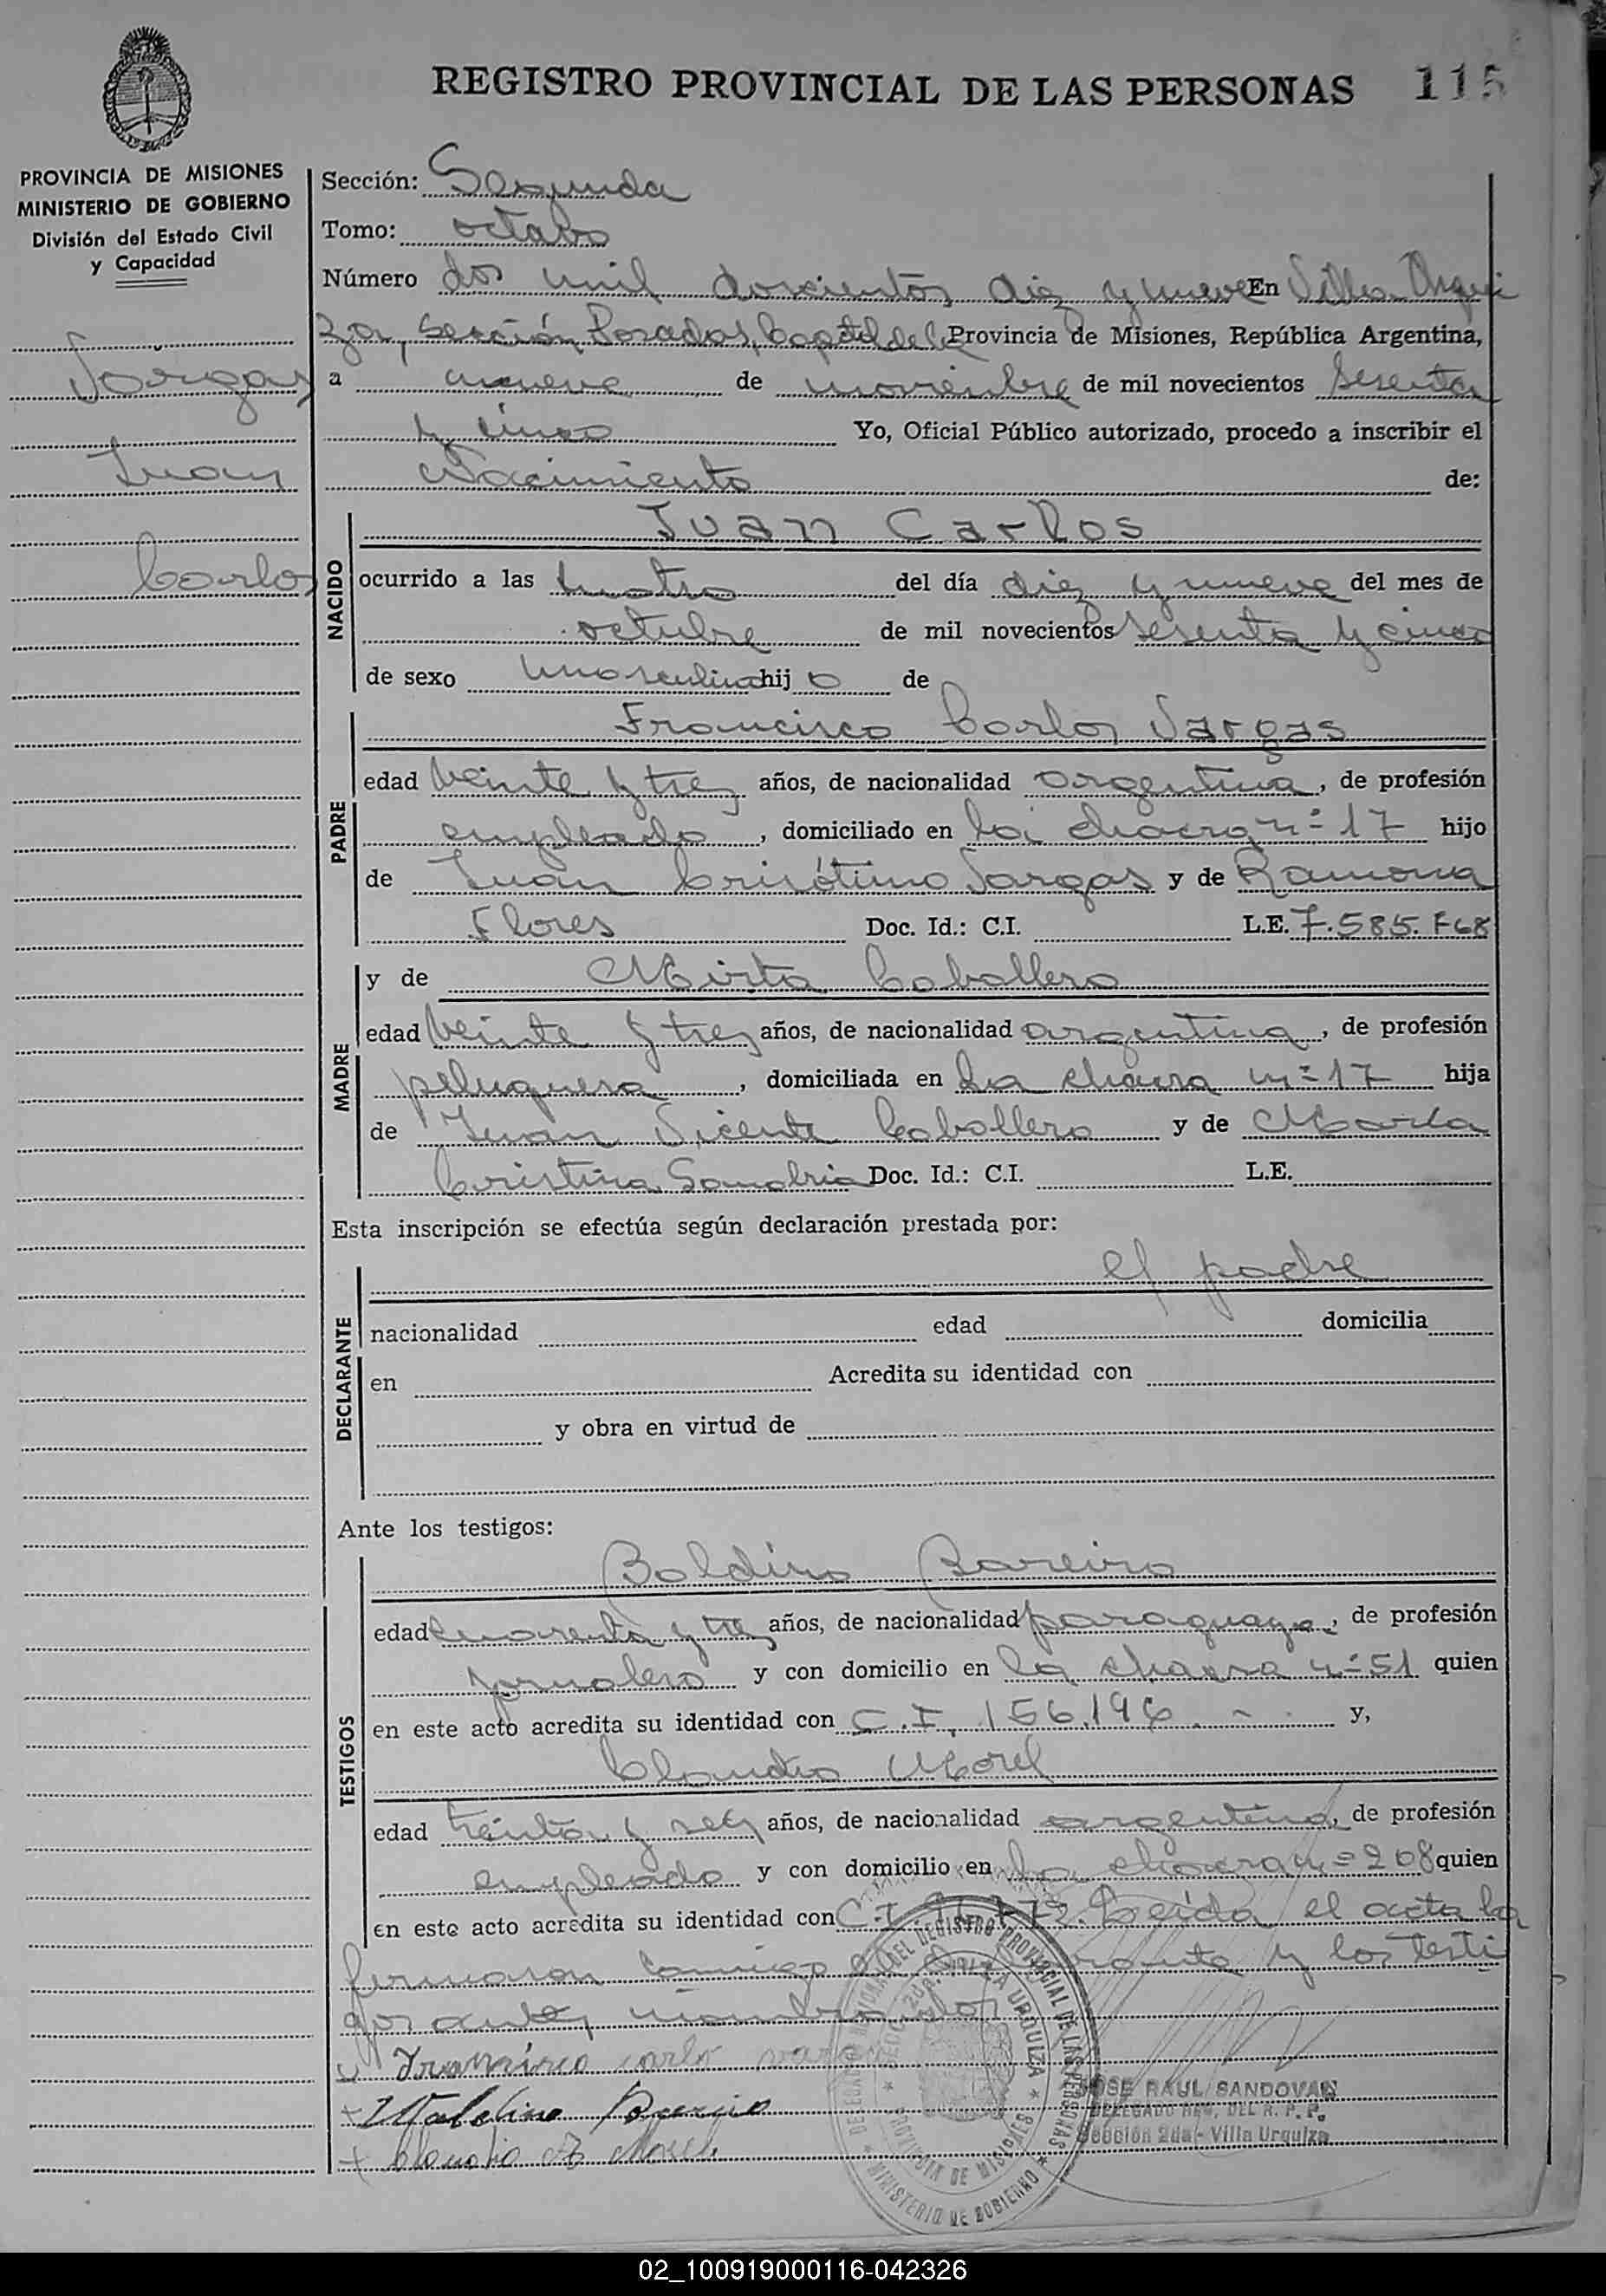 REGISTRO PROVINCIAL DE LAS PERSONAS 115
PROVINCIA DE MISIONES
MINISTERIO DE GOBIERNO
División del Estado Civil
y Capacidad
Vargas
Juan
Carlos
Sección: Segunda
Tomo: octabo
Número dos mil doscientos diez y nueve En Villa Urqui
za, Sección Posadas, Capital de la Provincia de Misiones, República Argentina,
a nueve de noviembre de mil novecientos sesenta
y cinco Yo, Oficial Público autorizado, procedo a inscribir el
Nacimiento de:
NACIDO
Juan Carlos
ocurrido a las cuatro del día diez y nueve del mes de
octubre de mil novecientos sesenta y cinco
de sexo masculino hij o de
PADRE
Francisco Carlos Vargas
edad veinte y tres años, de nacionalidad argentina, de profesión
empleado, domiciliado en la chacra n=17 hijo
de Juan Crisótimo Vargas y de Ramona
Flores Doc. Id.: C.I. L.E. 7.585.
MADRE
y de Mirta Caballero
edad veinte y tres años, de nacionalidad argentina, de profesión
peluquera, domiciliada en la chacra n=17 hija
de Juan Vicente Caballero y de María
Cristina Doc. Id.: C.I. L.E.
Esta inscripción se efectúa según declaración prestada por:
DECLARANTE
el padre
nacionalidad edad domicilia
en Acredita su identidad con
y obra en virtud de
Ante los testigos:
TESTIGOS
Boldino Bareiro
edad cuarenta y tres años, de nacionalidad paraguaya, de profesión
jornalero y con domicilio en la chacra n=51 quien
en este acto acredita su identidad con C.I. 156.196 y,
Claudio Morel
edad treinta y seis años, de nacionalidad argentina, de profesión
empleado y con domicilio en la chacra n=208 quien
en este acto acredita su identidad con C.I. Leída el acta la
firmaron conmigo el declarante y los testi
gos antes nombrados
Francisco Carlos
Claudio Morel
JOSE RAUL SANDOVAL
DELEGADO REG. DEL R. P. P.
Sección 2da - Villa Urquiza
REGISTRO PROVINCIAL DE LAS PERSONAS
VILLA URQUIZA
PROVINCIA DE MISIONES
MINISTERIO DE GOBIERNO
02_100919000116-042326